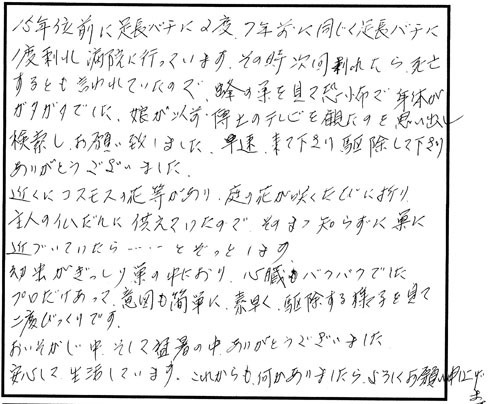 15年位前に足長バチに2度、7年前に同じく足長バチに
1度刺れ病院に行っています。その時次何刺れたら死亡
するとも言われていたので、蜂の巣を見て恐怖で身体が
ガタガタでした。娘が以前博士のテレビを観たのを思い出し
検索し、お願い致しました。早速、来て下さり駆除して下さり
ありがとうございました。
近くにコスモスの花等があり、庭の花が咲くたびに折り、
主人の仏だんに供えていたので、そのまま知らずに巣に
近づいていたら……とぞっとします
幼虫がぎっしり巣の中におり、心臓もバクバクでした
プロだけあって、意図も簡単に、素早く、駆除する様子を見て
二度びっくりです。
おいそがしい中、そして猛暑の中、ありがとうございました
安心して生活しています。これからも何かありましたら、よろしくお願い申し上げ
ます